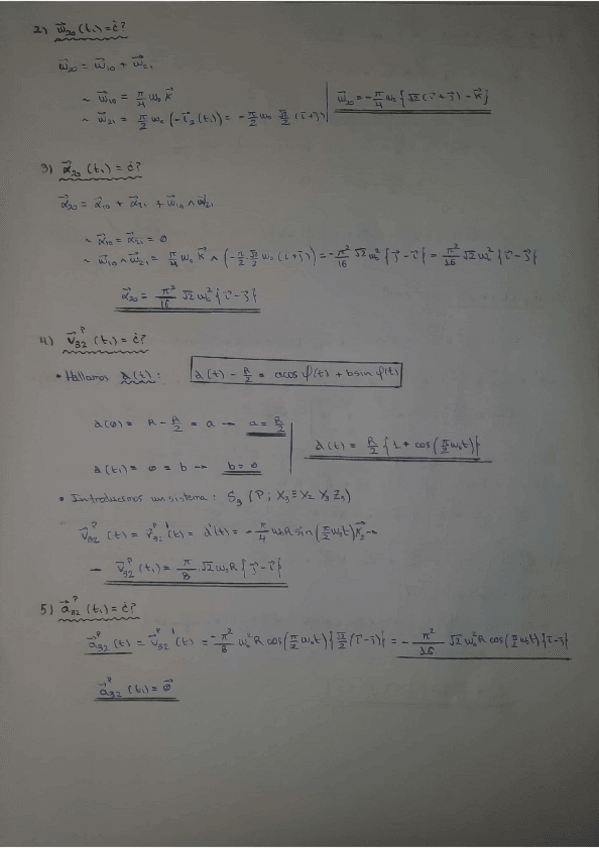 2) ω⃗₂₀(t₁) = ¿?
ω⃗₂₀ = ω⃗₁₀ + ω⃗₂₁
~ ω⃗₁₀ = π/4 ω₀ k⃗
~ ω⃗₂₁ = π/2 ω₀ (-i⃗₂(t₁)) = -π/2 ω₀ √2/2 (i⃗+j⃗) | ω⃗₂₀ = -π/4 ω₀ {√2(i⃗+j⃗) - k⃗}
3) α⃗₂₀(t₁) = ¿?
α⃗₂₀ = α⃗₁₀ + α⃗₂₁ + ω⃗₁₀ ∧ α⃗₂₁
~ α⃗₁₀ = α⃗₂₁ = 0
~ ω⃗₁₀ ∧ ω⃗₂₁ = π/4 ω₀ k⃗ ∧ (-π/2 √2/2 ω₀ (i+j)) = -π²/16 √2 ω₀² {j⃗ - i⃗} = π²/16 √2 ω₀² {i⃗ - j⃗}
α⃗₂₀ = π²/16 √2 ω₀² {i⃗ - j⃗}
4) v⃗ᴾ₃₂(t₁) = ¿?
• Hallamos λ(t): λ(t) - R/2 = a cos φ(t) + b sin φ(t)
λ(0) = R - R/2 = a → a = R/2
λ(t) = R/2 {1 + cos(π/2 ω₀t)}
λ(t₁) = 0 = b → b = 0
• Introducimos un sistema: S₃ (P; X₃ ≡ X₂ Y₃ Z₃)
v⃗ᴾ₃₂(t) = v⃗ᴾ₃₂'(t) = λ'(t) = -π/4 ω₀R sin(π/2 ω₀t) →
→ v⃗ᴾ₃₂(t₁) = π/8 √2 ω₀R {j⃗ - i⃗}
5) a⃗ᴾ₃₂(t₁) = ¿?
a⃗ᴾ₃₂(t) = v⃗ᴾ₃₂'(t) = -π²/8 ω₀²R cos(π/2 ω₀t) {√2/2 (i⃗-j⃗)} = -π²/16 √2 ω₀²R cos(π/2 ω₀t) {i⃗-j⃗}
a⃗ᴾ₃₂(t₁) = 0⃗